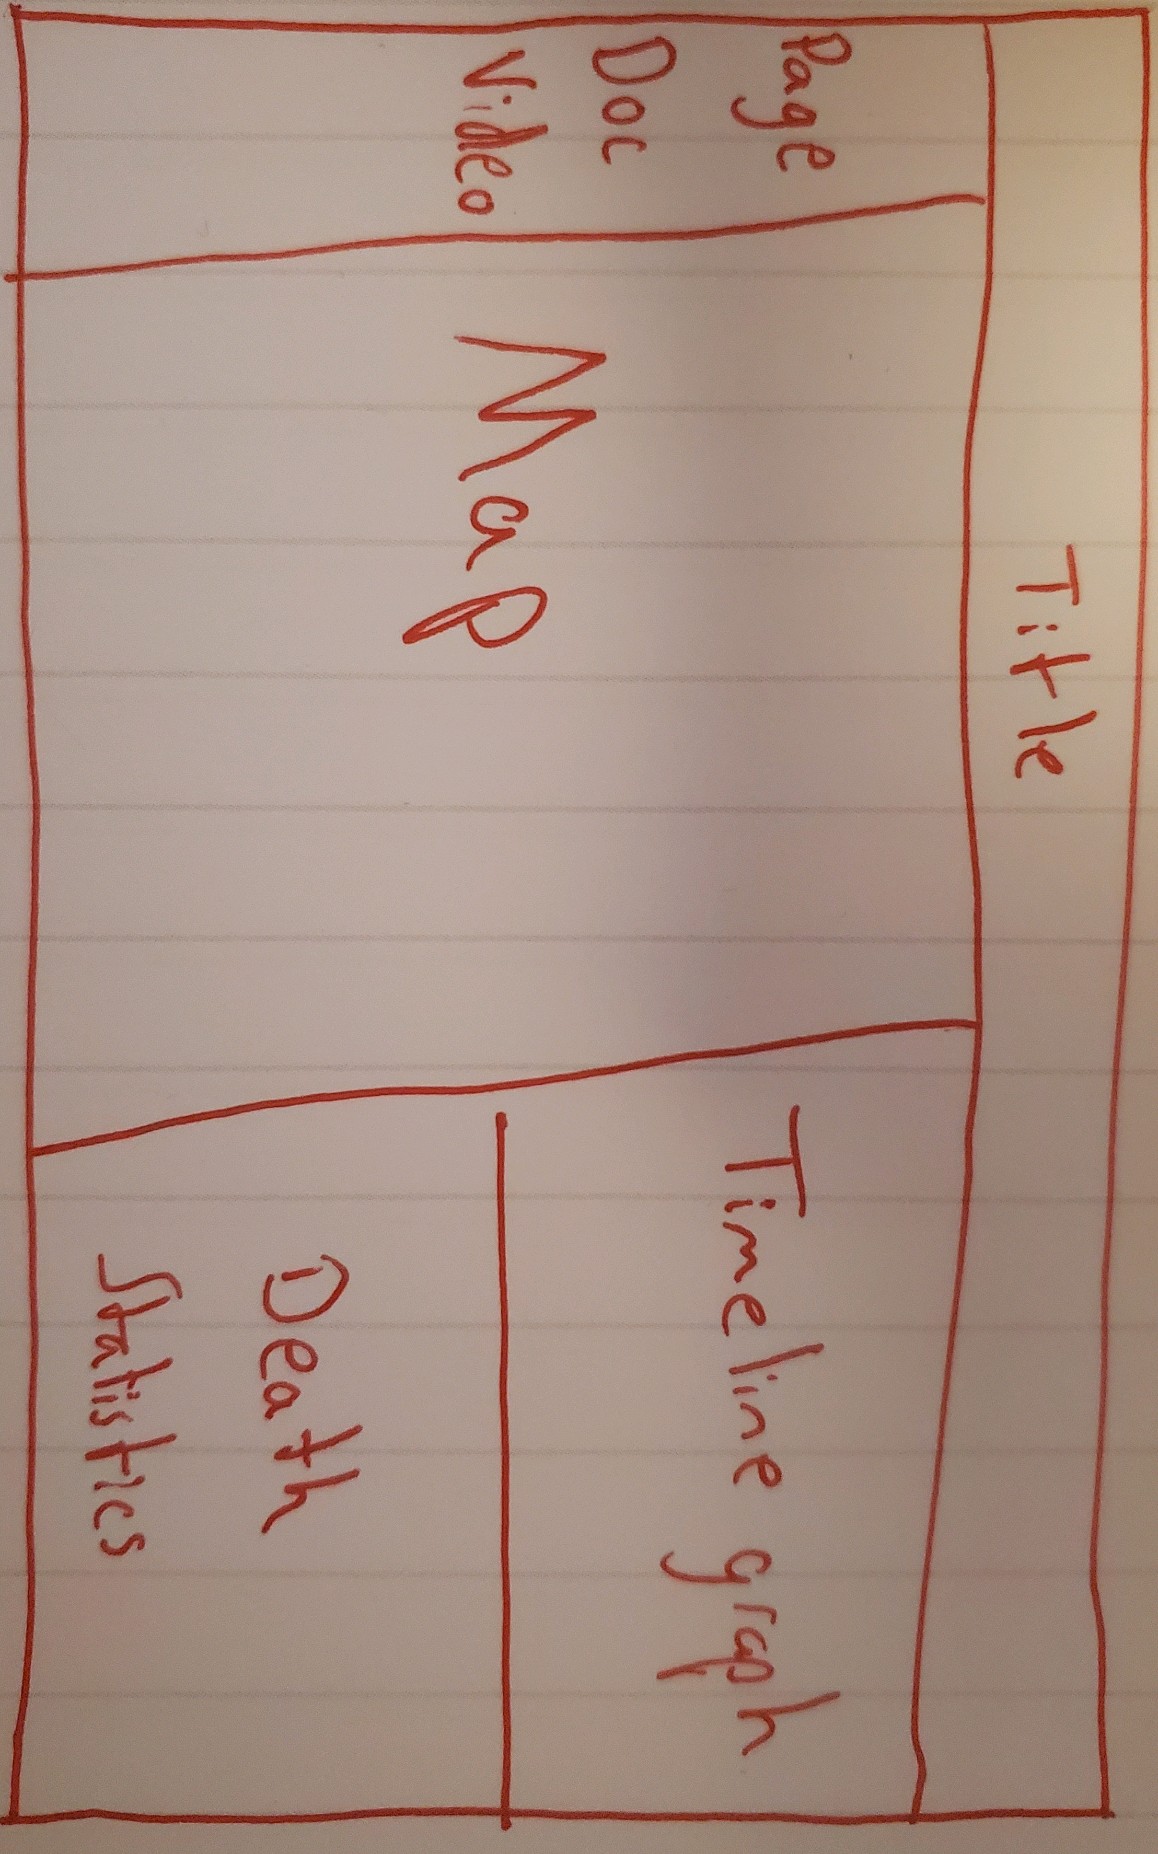 Title
Page
Doc
Video
Map
Timeline graph
Death
Statistics